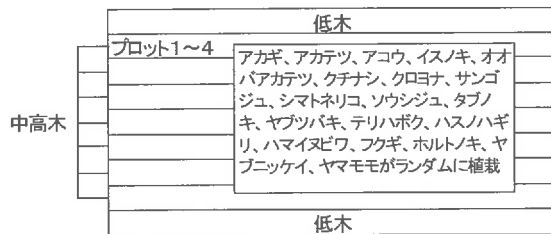 低木
プロット1～4
アカギ、アカテツ、アコウ、イスノキ、オオ
バアカテツ、クチナシ、クロヨナ、サンゴ
ジュ、シマトネリコ、ソウシジュ、タブノ
キ、ヤブツバキ、テリハボク、ハスノハギ
リ、ハマイヌビワ、フクギ、ホルトノキ、ヤ
ブニッケイ、ヤマモモがランダムに植栽
中高木
低木